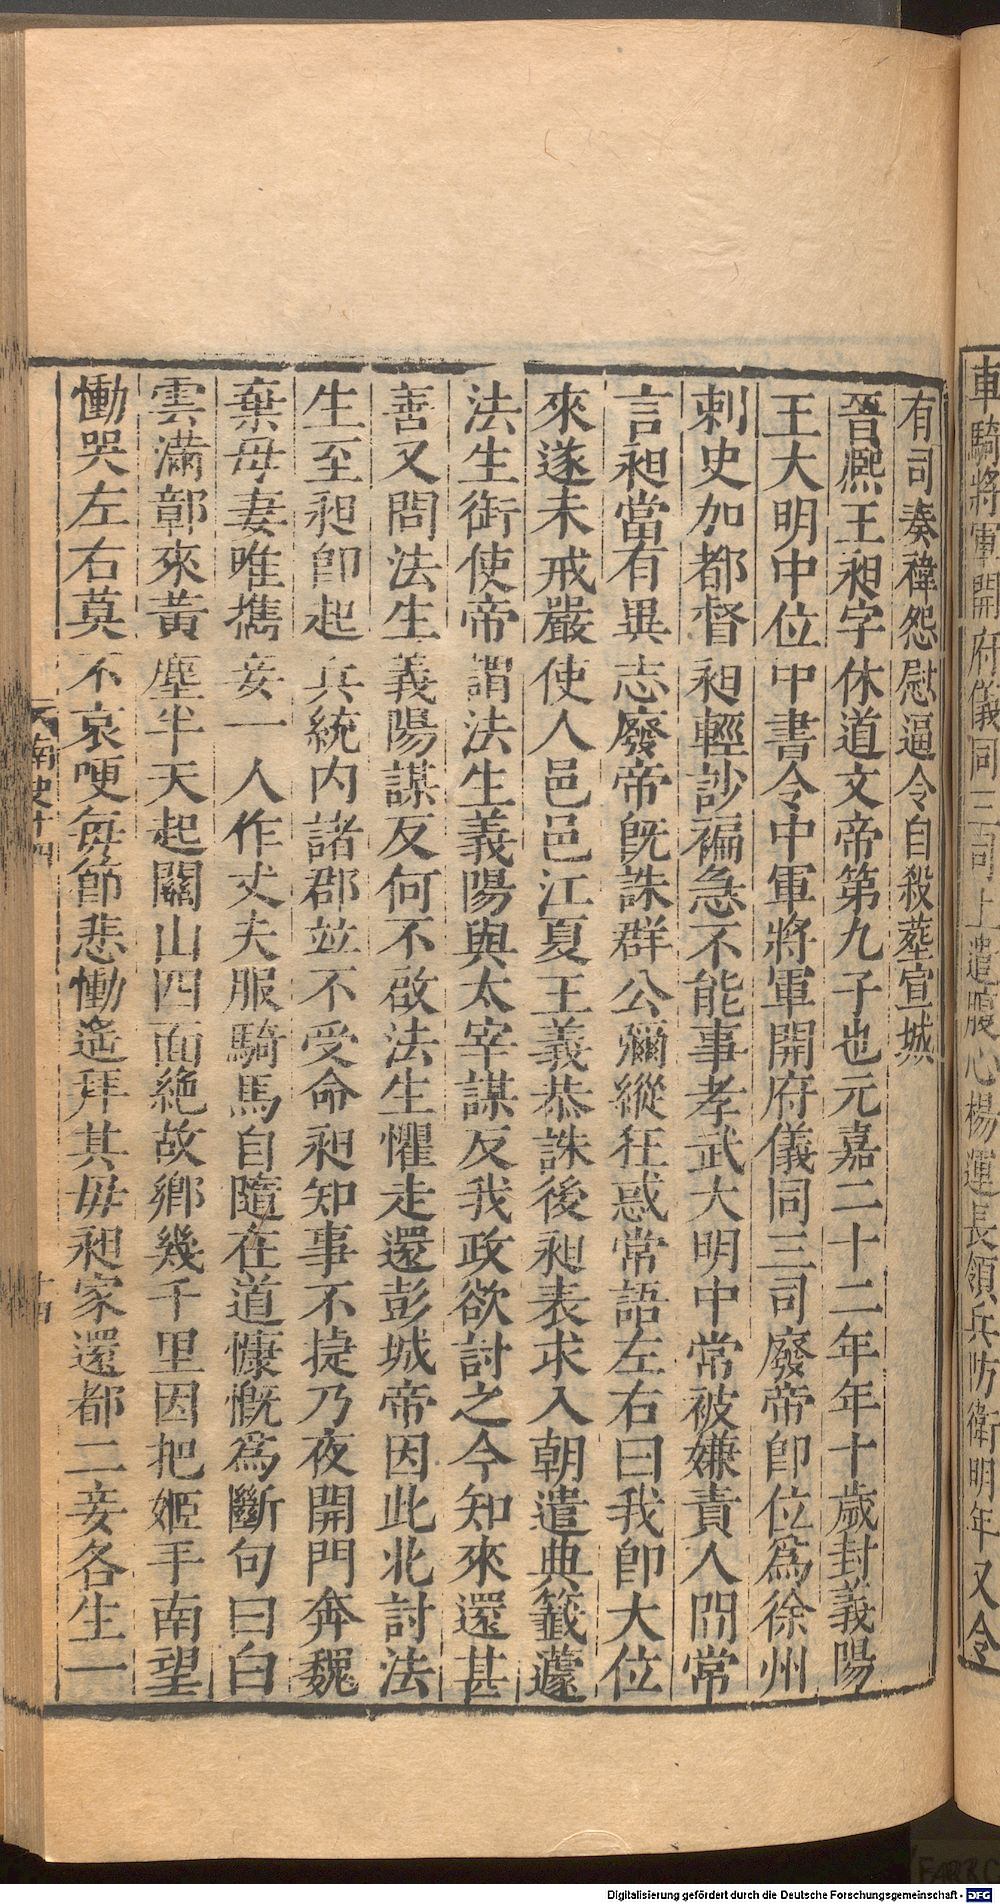 車騎將軍開府儀同三司上遣腹心楊運長領兵防衛明年又令
有司奏禕怨懟逼令自殺葬宣城
晉熙王昶字休道文帝第九子也元嘉二十二年年十歲封義陽
王大明中位中書令中軍將軍開府儀同三司廢帝卽位爲徐州
刺史加都督昶輕訬褊急不能事孝武大明中常被嫌責人間常
言昶當有異志廢帝旣誅群公彌縱狂惑常語左右曰我卽大位
來遂未戒嚴使人邑邑江夏王義恭誅後昶表求入朝遣典籤蘧
法生銜使帝謂法生義陽與太宰謀反我政欲討之今知來還甚
善又問法生義陽謀反何不啟法生懼走還彭城帝因此北討法
生至昶卽起兵統內諸郡竝不受命昶知事不捷乃夜開門奔魏
棄母妻唯攜妾一人作丈夫服騎馬自隨在道慷慨爲斷句曰白
雲滿鄣來黃塵半天起關山四面絕故鄉幾千里因把姬手南望
慟哭左右莫不哀哽每節悲慟遙拜其母昶家還都二妾各生一
南史十四
十四
Digitalisierung gefördert durch die Deutsche Forschungsgemeinschaft - DFG